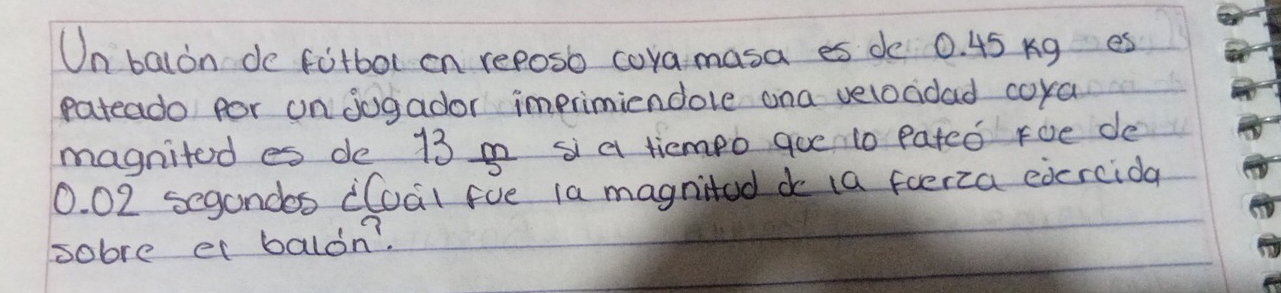 Un balón de fútbol en reposo cuya masa es de 0.45 Kg es
pateado por un jugador imprimiendole una velocidad cuya
magnitud es de 13 m/s si el tiempo que lo pateó fue de
0.02 segundos ¿Cuál fue la magnitud de la fuerza ejercida
sobre el balón?.